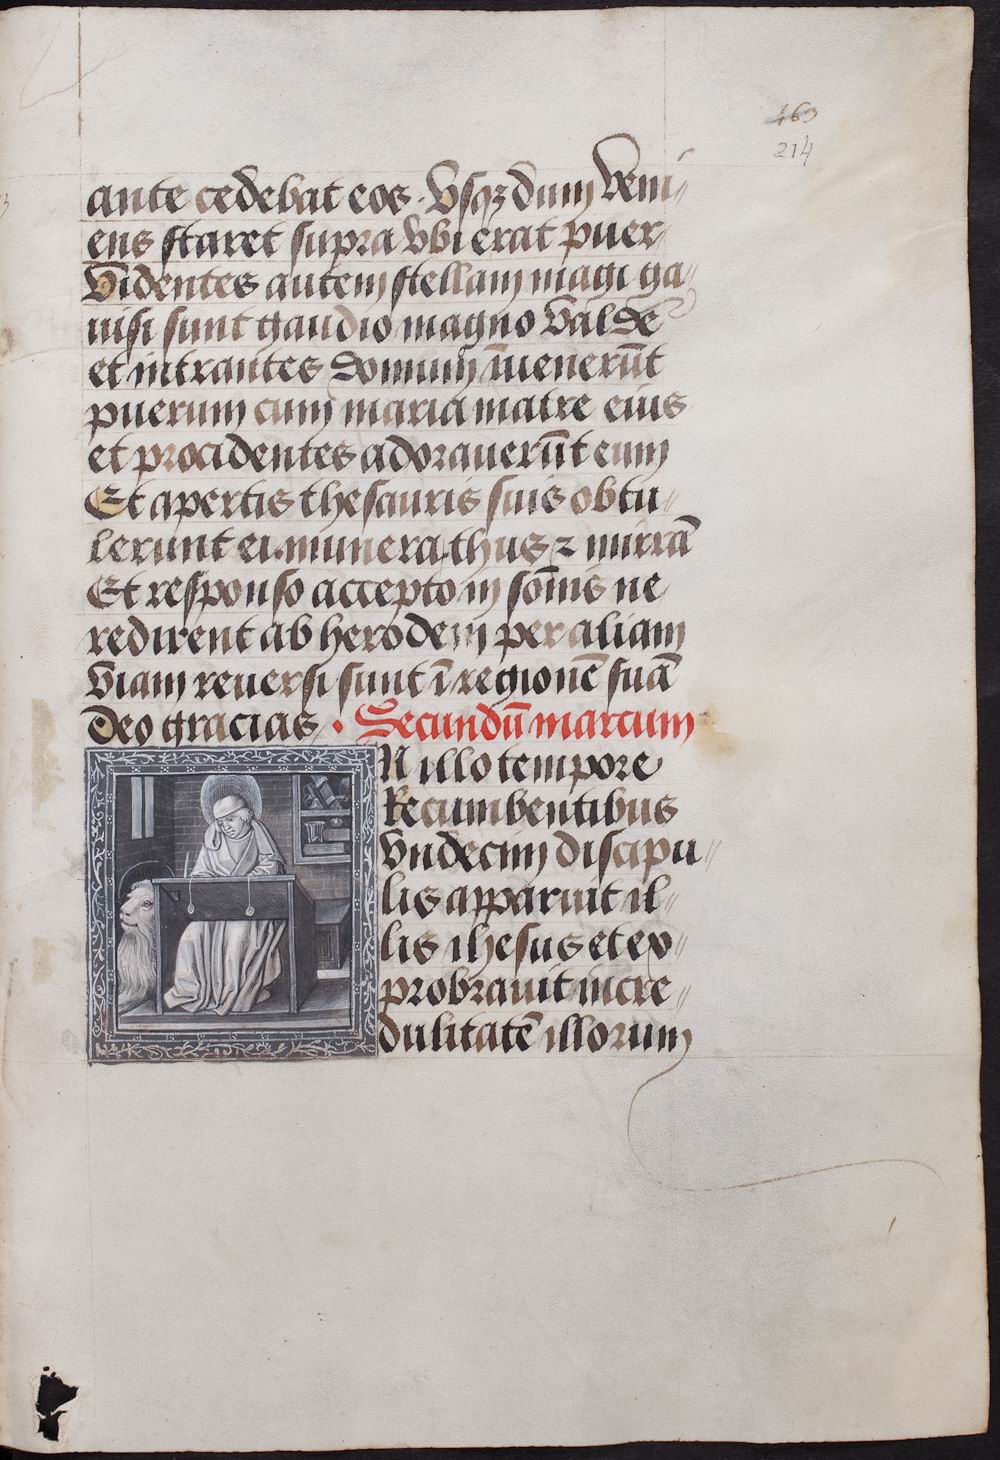 463
214
ante cedebat eos. Vsqꝫ dum veni//
ens staret supra vbi erat puer
Videntes autem stellam magi ga//
uisi sunt gaudio magno valde
et intrantes domum īuenerūt
puerum cum maria matre eius
et procidentes adorauerūt eum
Et apertis thesauris suis obtu//
lerunt ei. munera. thus ⁊ mirrā
Et responso accepto in sōnis ne
redirent ab herodem per aliam
viam reuersi sunt ī regionē suā
Deo gracias. Secundū marcum
N illo tempore
Recumbentibus
vndecim discipu//
lis apparuit il//
lis ihesus et ex//
probrauit incre//
dulitatē illorum